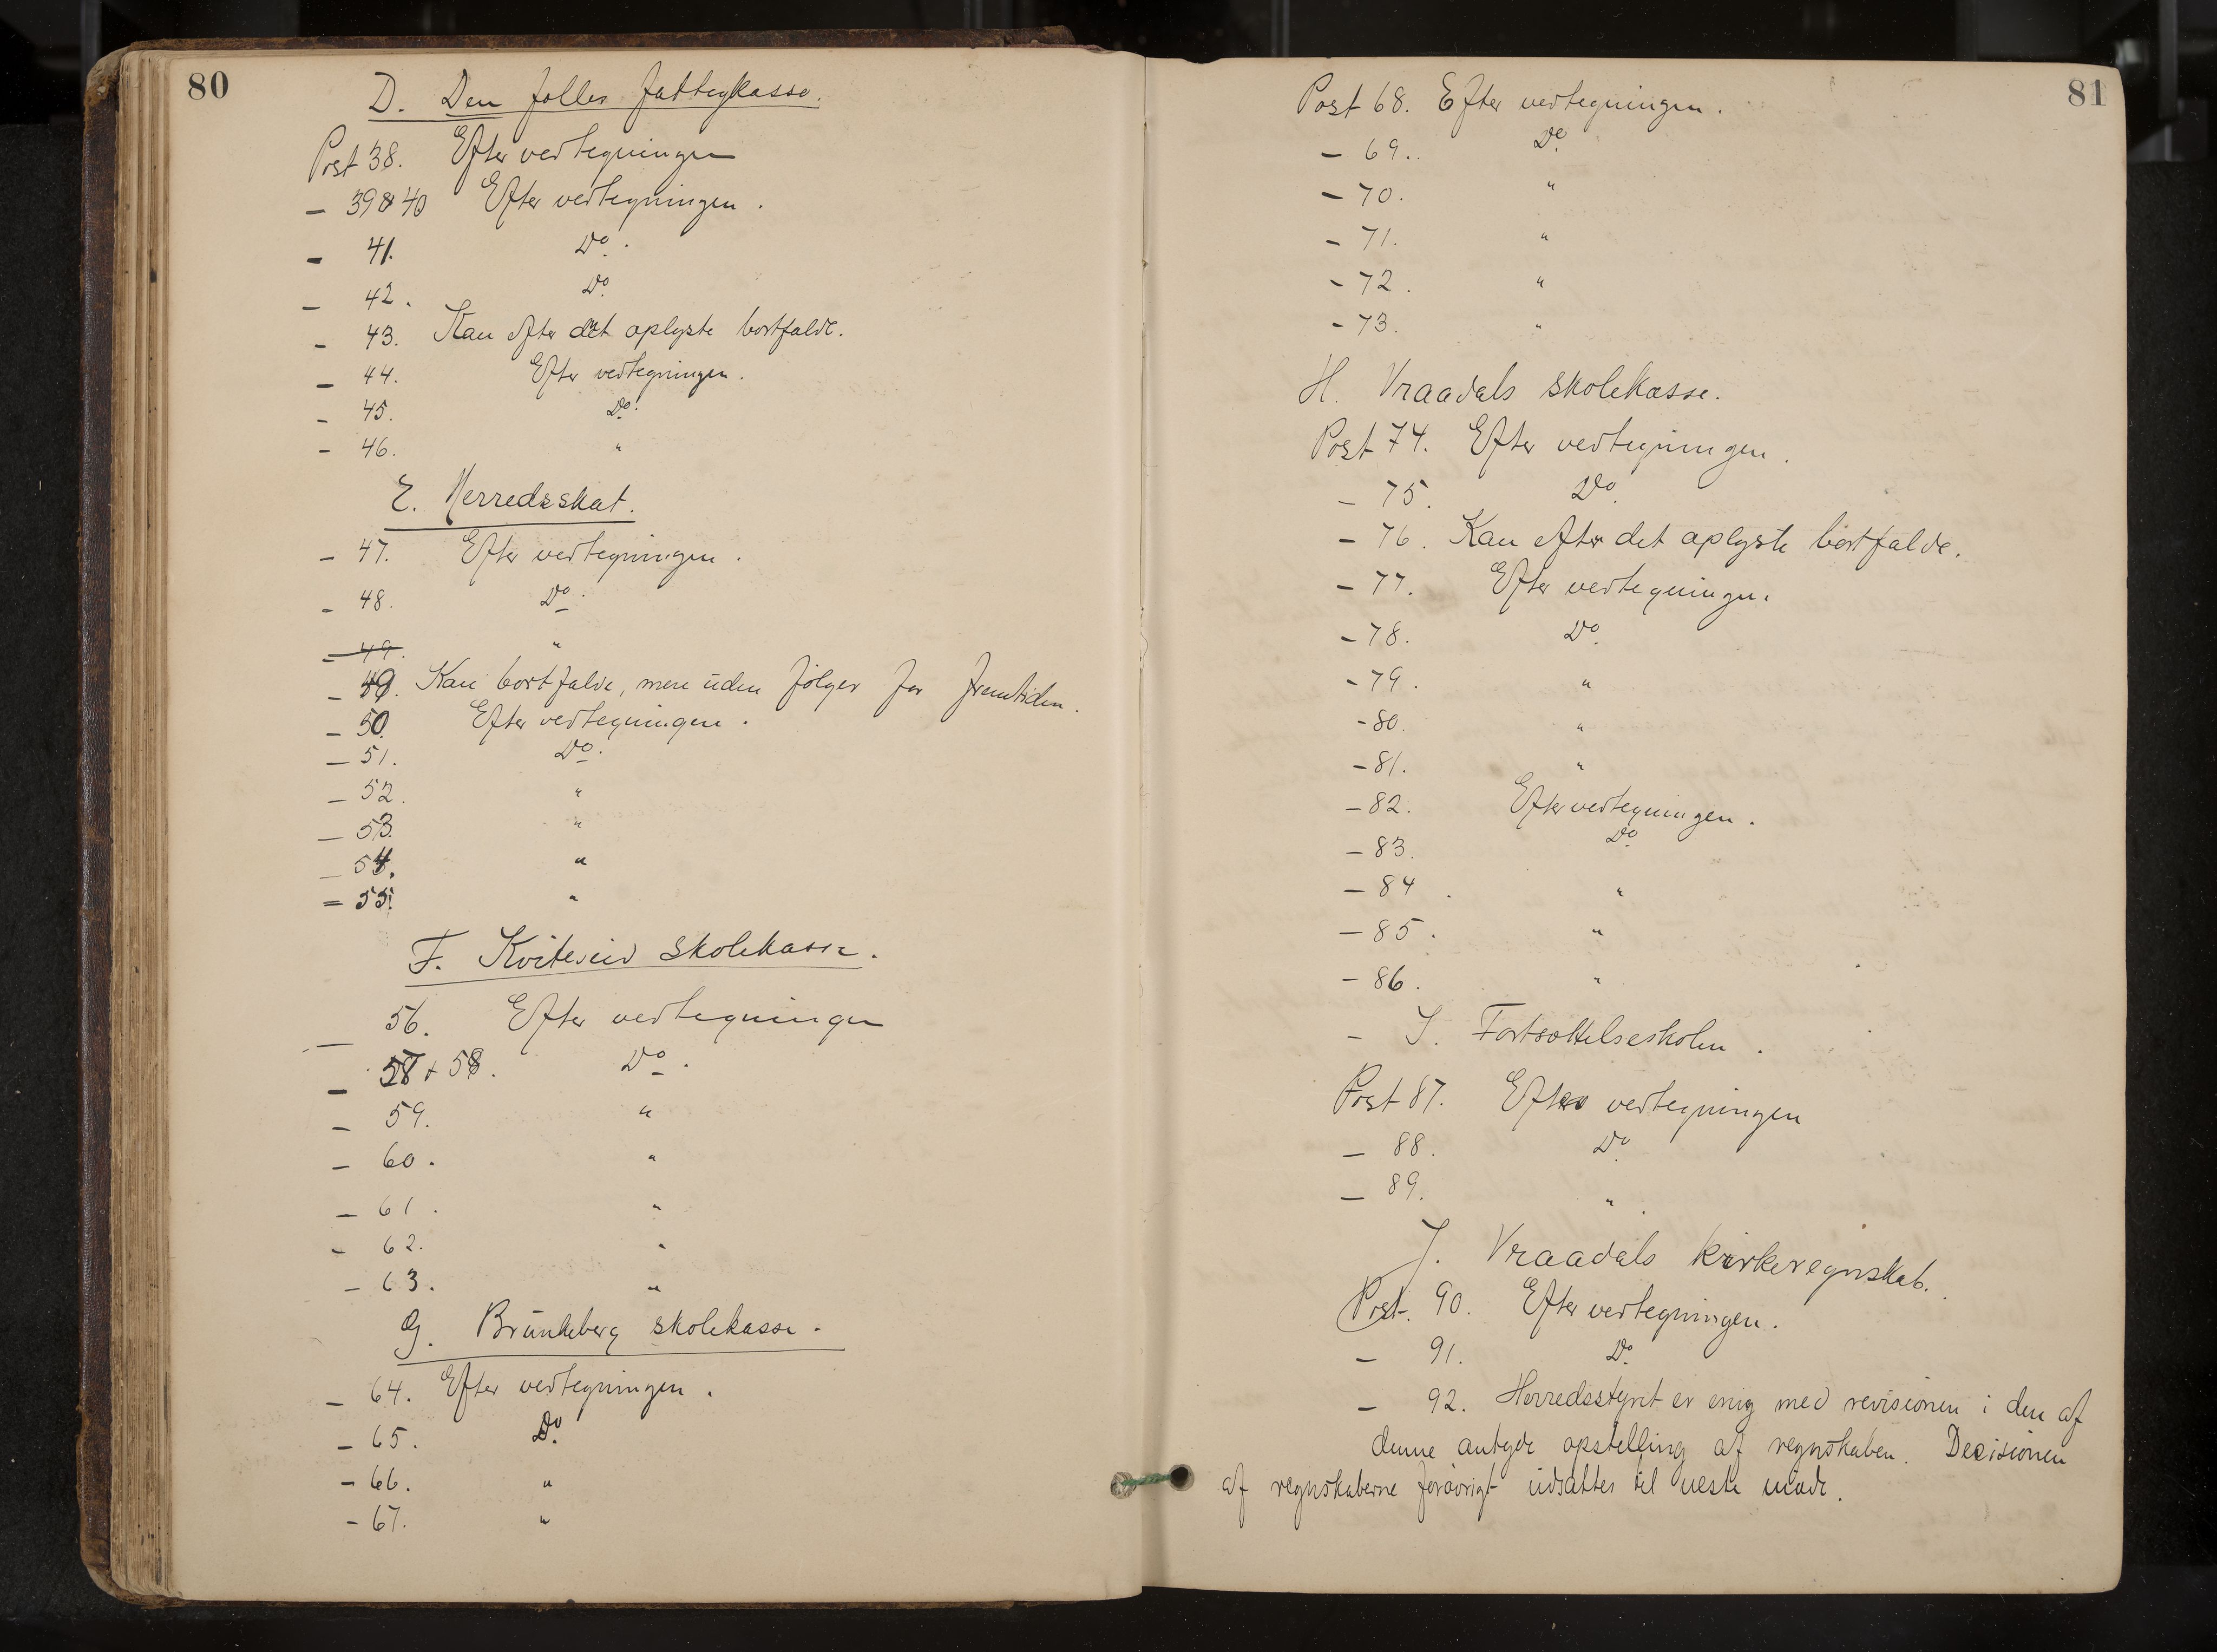 80
D. Den fælles fattegkasse.
Post 38. Efter vedtegningen
- 39 & 40 Efter vedtegningen.
- 41. Do.
- 42. Do
- 43. Kan efter det oplyste bortfalde.
- 44. Efter vedtegningen.
- 45. Do.
- 46. "
E. Herredsskat.
- 47. Efter vedtegningen.
- 48. Do.
- 49. "
- 49. Kan bortfalde, men uden følger for fremtiden.
- 50. Efter vedtegningen.
- 51. Do.
- 52. "
- 53. "
- 54. "
- 55. "
F. Kviteseid skolekasse.
- 56. Efter vedtegningen
- 57 + 58. Do.
- 59. "
- 60. "
- 61. "
- 62. "
- 63. "
G. Brunkeberg skolekasse.
- 64. Efter vedtegningen.
- 65. Do.
- 66. "
- 67. "
81
Post 68. Efter vedtegningen.
- 69. Do.
- 70. "
- 71. "
- 72. "
- 73. "
H. Vraadals skolekasse.
Post 74. Efter vedtegningen.
- 75. Do.
- 76. Kan efter det oplyste bortfalde.
- 77. Efter vedtegningen.
- 78. Do.
- 79. "
- 80. "
- 81. "
- 82. Efter vedtegningen.
- 83. Do
- 84. "
- 85. "
- 86. "
- I. Fortsættelsesskolen.
Post 87. Efter vedtegningen
- 88. Do
- 89. "
J. Vraadals kirkeregnskab.
Post. 90. Efter vedtegningen.
- 91. Do.
- 92. Herredsstyret er enig med revisionen i den af
denne antyde opstelling af regnskaben. Decisionen
af regnskaberne forøvrigt udsættes til neste møde.